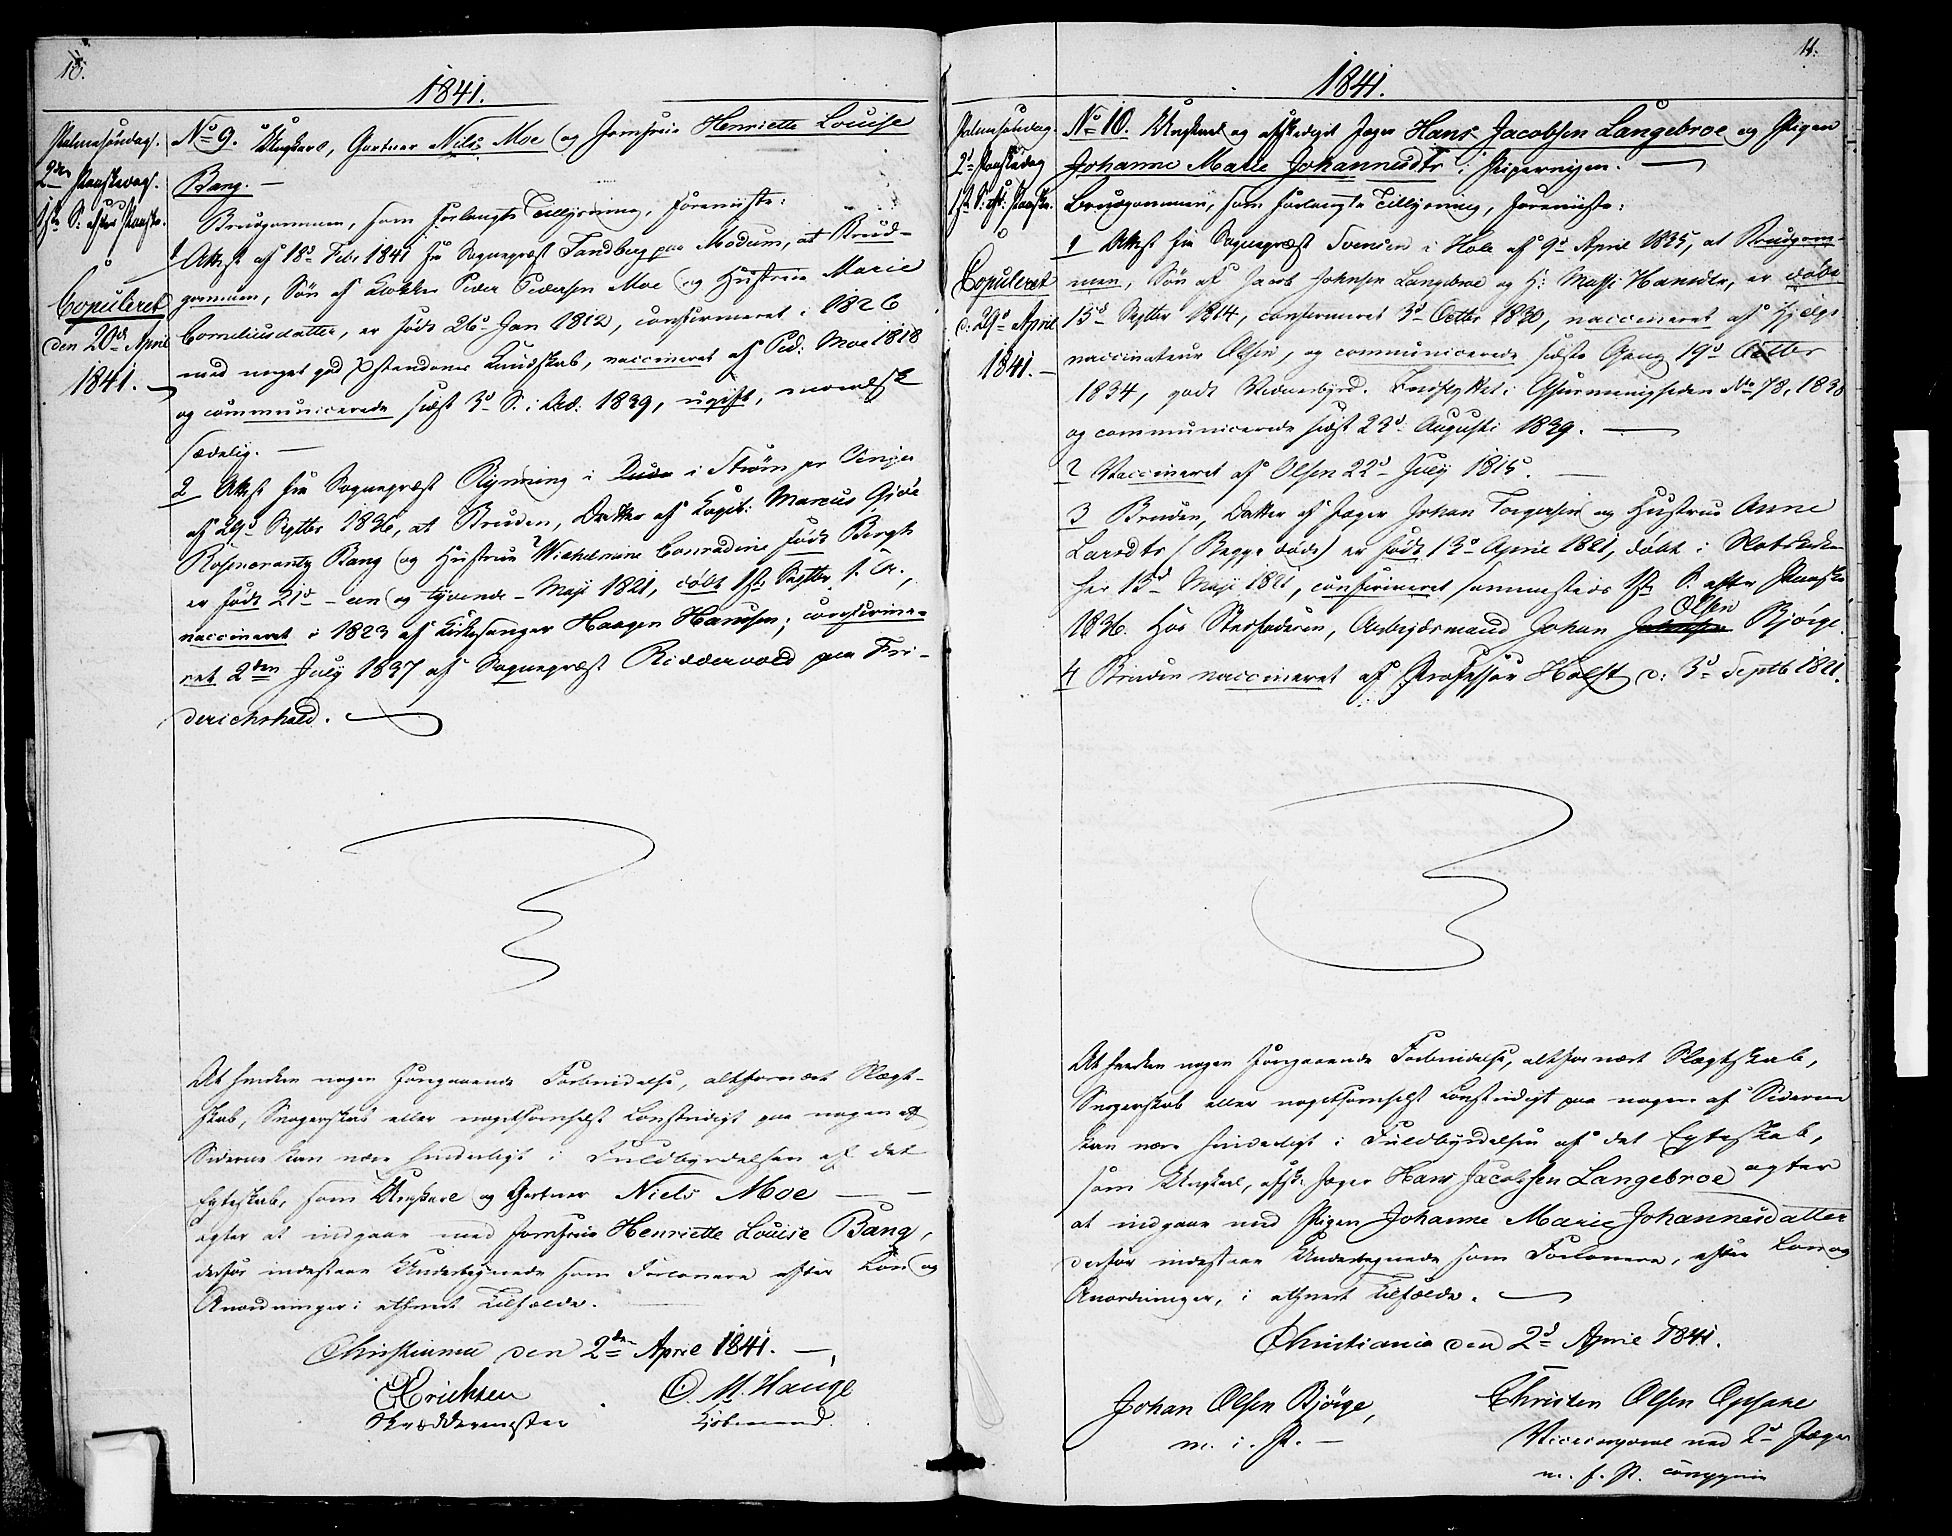 10.
1841.
Palmesöndag.
2den Paaskedag.
1ste S. efter Paaske.
Copuleret
den 20de April
1841.
No 9. Ungkarl, Gartner Niels Moe og Jomfrue Henriette Louise
Bang.
Brudgommen, som forlangte Tillysning, foreviiste:
1 Attest af 18d Febr 1841 fra Sognepræst Tandberg paa Modum, at Brud-
gommen, Søn af Klokker Peder Pedersen Moe og Hustrue Marie
Corneliusdatter, er født 26d Jan 1812, confirmeret i 1826
med meget god Xstendoms Kundskab, vaccineret af Ped: Moe 1818
og communicerede sidst 3d S. i Adv: 1839, ugift, moralsk
sædelig.
2 Attest fra Sognepræst Rynning i Strøm pr Vinger
af 29d Septbr 1836, at Bruden, Datter af Capit: Marcus Gjøe
Rosencrantz Bang og Hustrue Wilhelmine Conradine født Bergh
er født 21d - een og tyvende - Maji 1821, døbt 1ste Septbr s. A.,
vaccineret i 1823 af Kirkesanger Haagen Hanssen; confirme-
ret 2den July 1837 af Sognepræst Riddervold paa Fri-
derichshald.
At hverken nogen foregaaende Forbindelse, altfornært Slægt-
skab, Svogerskab eller nogetsomhelst Lovstridigt paa nogen af
Siderne kan være hinderligt i Fuldbyrdelsen af det
Egteskab, som Ungkarl og Gartner Niels Moe
agter at indgaae med Jomfrue Henriette Louise Bang,
derfor indestaae Undertegnede som Forlovere efter Lov og
Anordninger i ethvert Tilfælde.
Christiania den 2den April 1841.
Erichsen O. M. Hauge
Skræddermester Kjøbmand.
11.
1841.
Palmesöndag.
2d Paaskedag
1ste S. eft: Paaske.
Copuleret
d: 29d April
1841.
No 10. Ungkarl og afskediget Jæger Hans Jacobsen Langebroe og Pigen
Johanne Marie Johannesdtr i Pipervigen.
Brudgommen, som forlangte Tillysning, foreviiste:
1 Attest fra Sognepræst Svensen i Hole af 9d April 1835, at Brudgom-
men, Søn af Jacob Johnsen Langebroe og H: Massi Hansdtr, er døbt
15d Septbr 1814, confirmeret 3d Octbr 1830, vaccineret af Hjelpe
vaccinateur Olsen, og communicerede sidste Gang 19d Octbr
1834, godt Vidnesbyrd. Indskyttet i No 78, 1838
og communicerede sidst 23d Augusti 1839.
2 Vaccineret af Olsen 22d July 1815.
3 Bruden, Datter af Jæger Johan Torgersen og Hustrue Anne
Larsdtr (Begge døde) er født 13d April 1821, døbt i Slotskirken
her 13d Maji 1821, confirmeret sammesteds 1ste S. efter Paaske
1836. Hos Stedfaderen, Arbeidsmand Johan Olsen Bjørge.
4 Bruden vaccineret af Professor Holst d: 3d Septb 1821.
At hverken nogen foregaaende Forbindelse, altfornært Slægtskab,
Svogerskab eller nogetsomhelst Lovstridigt paa nogen af Siderne
kan være hinderligt i Fuldbyrdelsen af det Egteskab,
som Ungkarl, afsk. Jæger Hans Jacobsen Langebroe agter
at indgaae med Pigen Johanne Marie Johannesdatter
derfor indestaae Undertegnede som Forlovere, efter Lov og
Anordninger, i ethvert Tilfælde.
Christiania den 2d April 1841.
Johan Olsen Bjørge, Christen Olsen Opsahl
m. i. P. Vicecorporal ved 2d Jæger
m. f. P. Compagnie